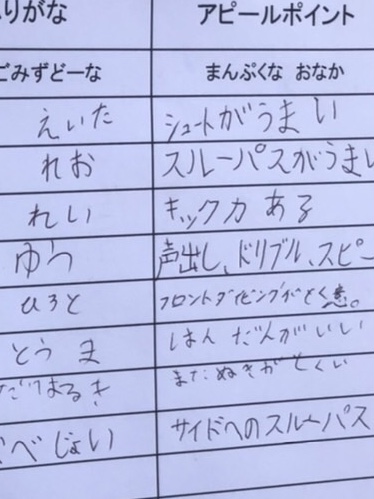 りがな アピールポイント
ごみずどーな まんぷくな おなか
えいた シュートがうまい
れお スルーパスがうまい
れい キック力 ある
ゆう 声出し、ドリブル、スピー
ひろと フロントダイビングがとく意。
とうま はん だんが いい
はるき またぬきが とくい
べ じょい サイドへのスルーパス